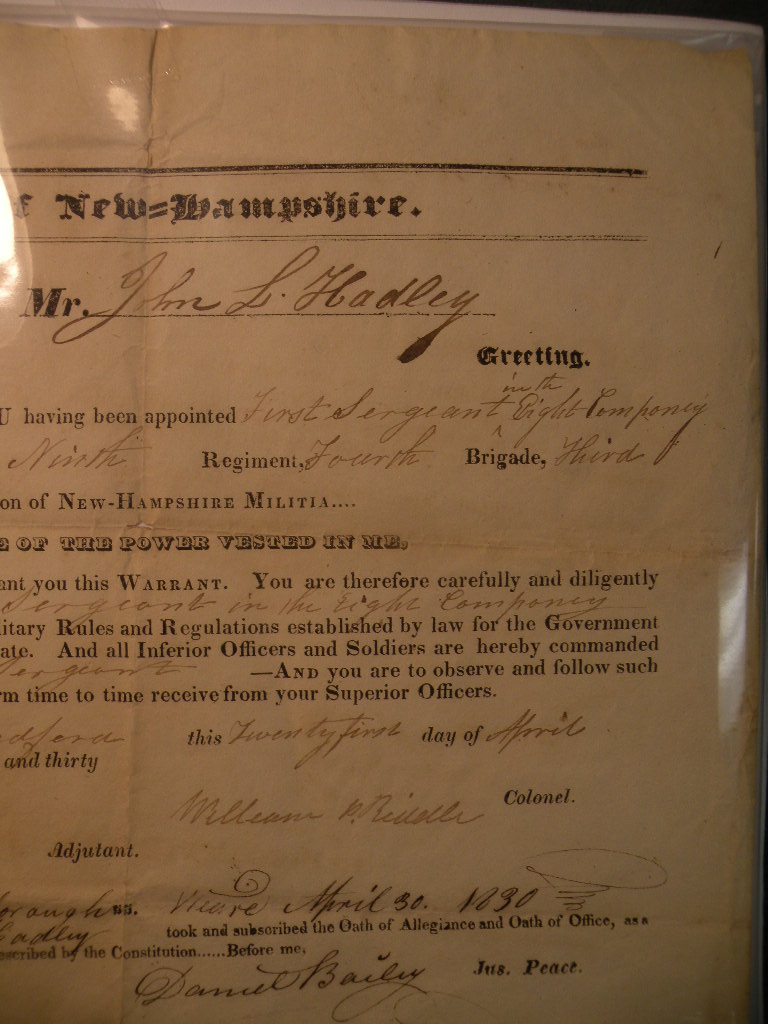 f New=Hampshire.
Mr. John L. Hadley
Greeting.
in th
U having been appointed First Sergeant ‸ Eight Componey
Ninth Regiment, Fourth Brigade, Third
on of NEW-HAMPSHIRE MILITIA....
E OF THE POWER VESTED IN ME,
ant you this WARRANT. You are therefore carefully and diligently
Sergeant in the Eight Componey
litary Rules and Regulations established by law for the Government
ate. And all Inferior Officers and Soldiers are hereby commanded
Sergeant —AND you are to observe and follow such
rm time to time receive from your Superior Officers.
edford this Twenty first day of April
and thirty
William P. Riddle Colonel.
Adjutant.
orough ss. Weare April 30. 1830
Hadley took and subscribed the Oath of Allegiance and Oath of Office, as a
escribed by the Constitution......Before me,
Daniel Bailey Jus. Peace.